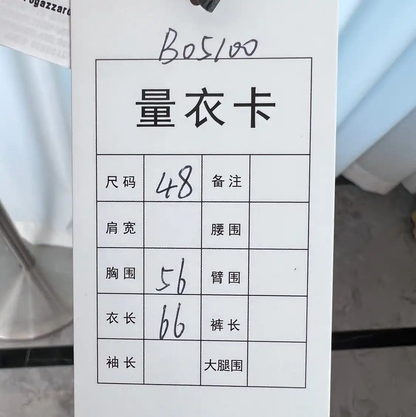 B05100
量衣卡
尺码 48 备注
肩宽 腰围
胸围 56 臂围
衣长 66 裤长
袖长 大腿围